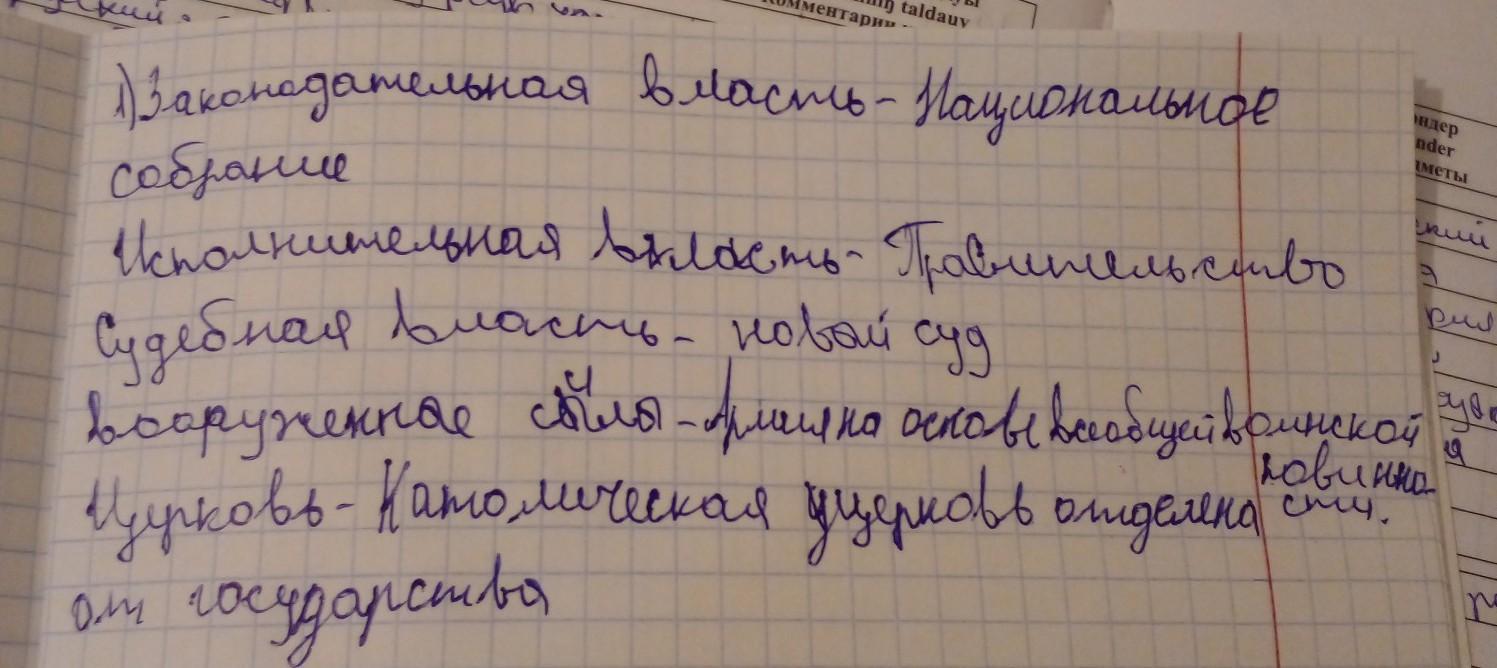 комментарии
taldauy
ндер
nder
меты
1) Законодательная власть - Национальное
собрание
Исполнительная власть - Правительство
Судебная власть - новый суд
Вооруженные силы - Армия на основе всеобщей воинской
повинно-
сти.
Церковь - Католическая церковь отделена
от государства